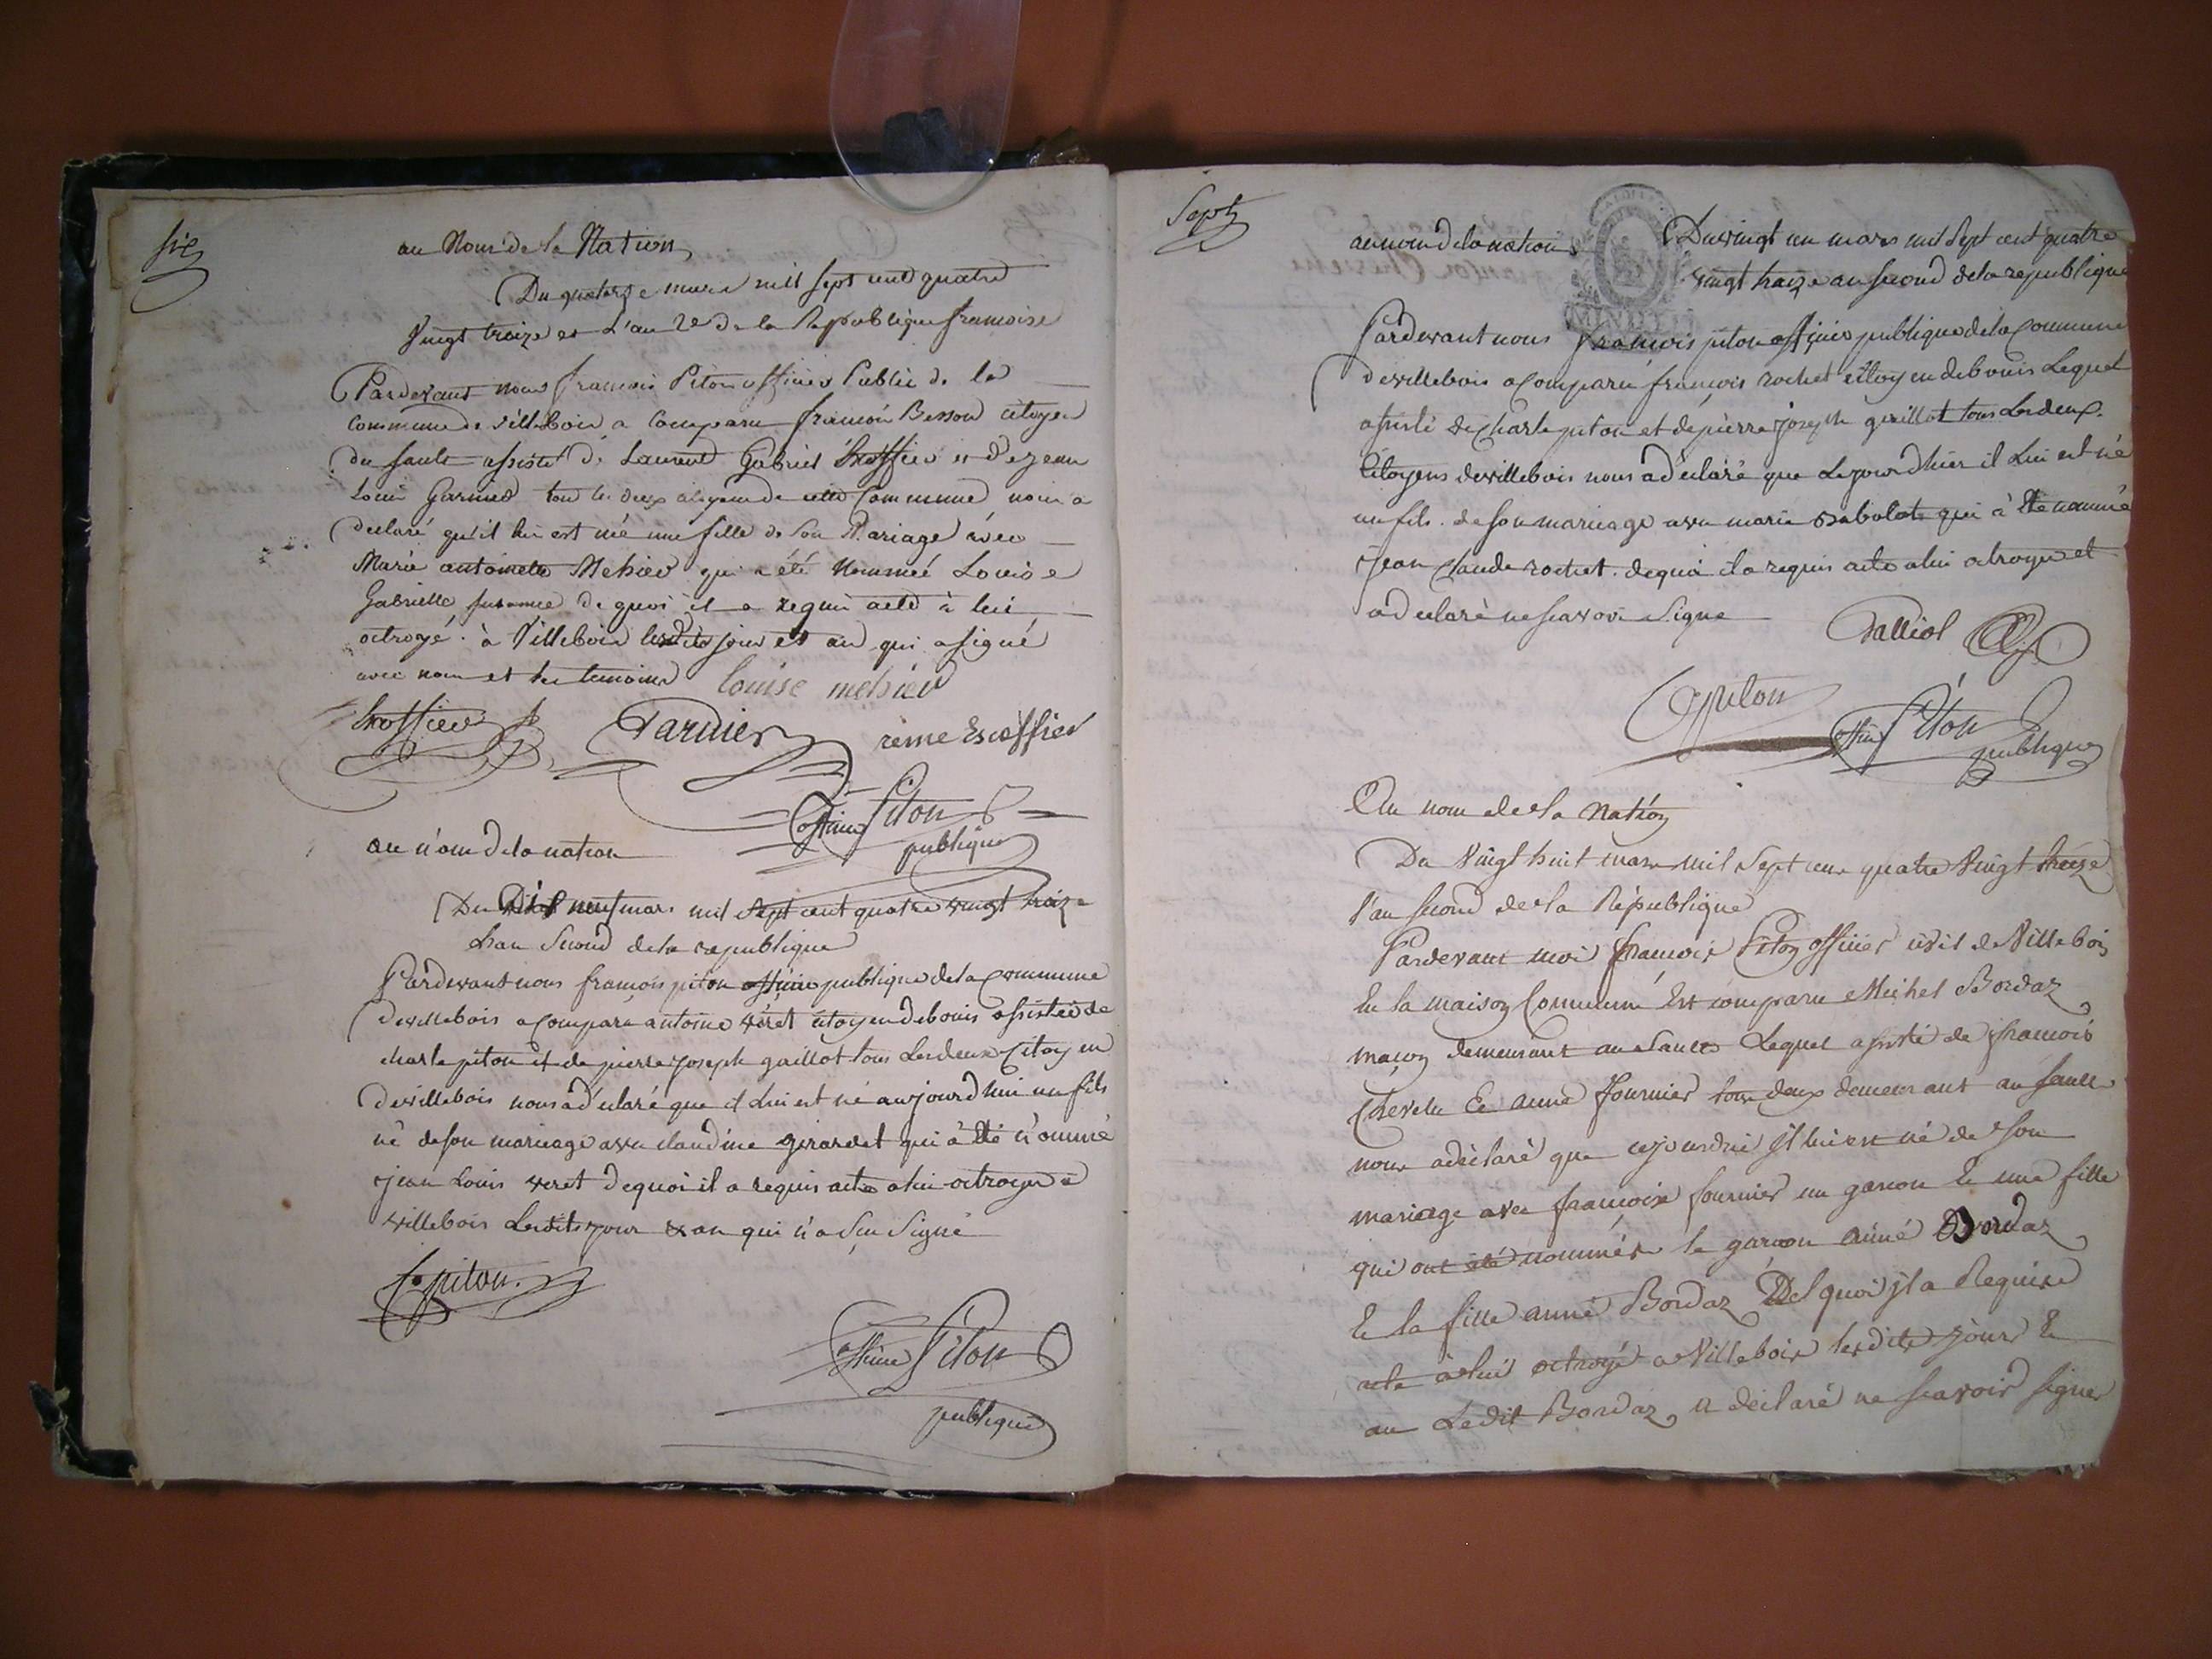 six
au Nom de la Nation
Du quatorze mars mil sept cent quatre
Vingt traize et L'an 2e de la Republique francoise
Pardevant nous francois Piton officier Public de la
Commune de villebois a Comparu francois Besson citoyen
du sault assisté de Laurent Gabriel Escoffier et de jean
Louis Garnier tous les deux citoyens de cette Commune nous a
declaré qu'il lui est née une fille de Son Mariage avec
Marie antoinette Mehier qui a été Nommée Louise
Gabrielle de quoi il a requis acte à lui
octroyé à Villebois lesdits jour et an qui a signé
avec nous et les temoins louise mehier
Escoffier Garnier reine Escoffier
officier Piton
publique
au nom de la nation
Du Dix neuf mars mil sept cent quatre vingt traize
l'an Second de la republique
Pardevant nous francois piton officier publique de la commune
de villebois a comparu antoine veret citoyen de bouis assisté de
charle piton et de pierre joseph gaillot tous Les deux Citoyen
de villebois nous a déclaré que il Lui est né aujourd'hui un fils
né de son mariage avec claudine girardet qui à été nommé
jean Louis veret de quoi il a requis acte a lui octroyé a
villebois Lesdits jour et an qui n'a Sçu Signé
C piton
officier Piton
publique
Sept
au nom de la nation Du vingt un mars mil Sept cent quatre
vingt traize an second de la republique
Pardevant nous françois piton officier publique de la commune
de villebois a comparu françois rochet citoyen de bouis Lequel
assisté de charle piton et de pierre joseph gaillot tous Les deux
Citoyens de villebois nous a déclaré que Le jour d'hier il Lui est né
un fils de son mariage avec marie qui à été nommé
jean claude rochet de quoi il a requis acte a lui octroyé et
a déclaré ne scavoir Signe
Galliot
C piton
officier Piton
publique
Au nom de la Nation
Du Vingt huit mars mil Sept cent quatre Vingt treize
l'an second de la République
Pardevant moi francois Piton officier civil de Villebois
En la maison Commune Est comparu Michel Bordaz
maçon demeurant au Sault Lequel assisté de francois
Chevelu Et anne fournier tous deux demeurant au sault
nous a déclaré que cejourdui jl lui est né de son
mariage avec francoise fournier un garcon Et une fille
qui ont été nommés le garcon aimé Bordaz
Et la fille anne Bordaz Del quoi jl a Requise
acte à lui octroyé a Villebois lesdits jour Et
an Ledit Bordaz a déclaré ne scavoir signer